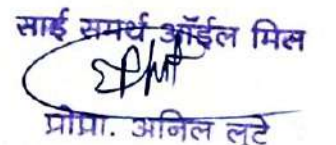 साई समर्थ ऑईल मिल
प्रोप्रा. अनिल लुटे